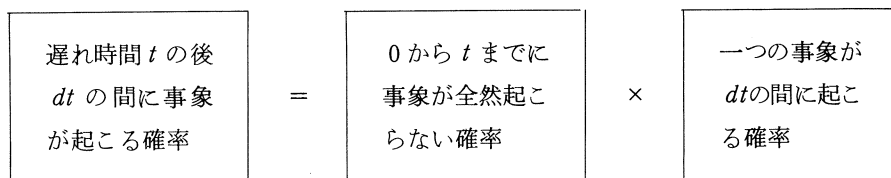 遅れ時間 t の後
dt の間に事象
が起こる確率
=
0 から t までに
事象が全然起こ
らない確率
×
一つの事象が
dtの間に起こ
る確率